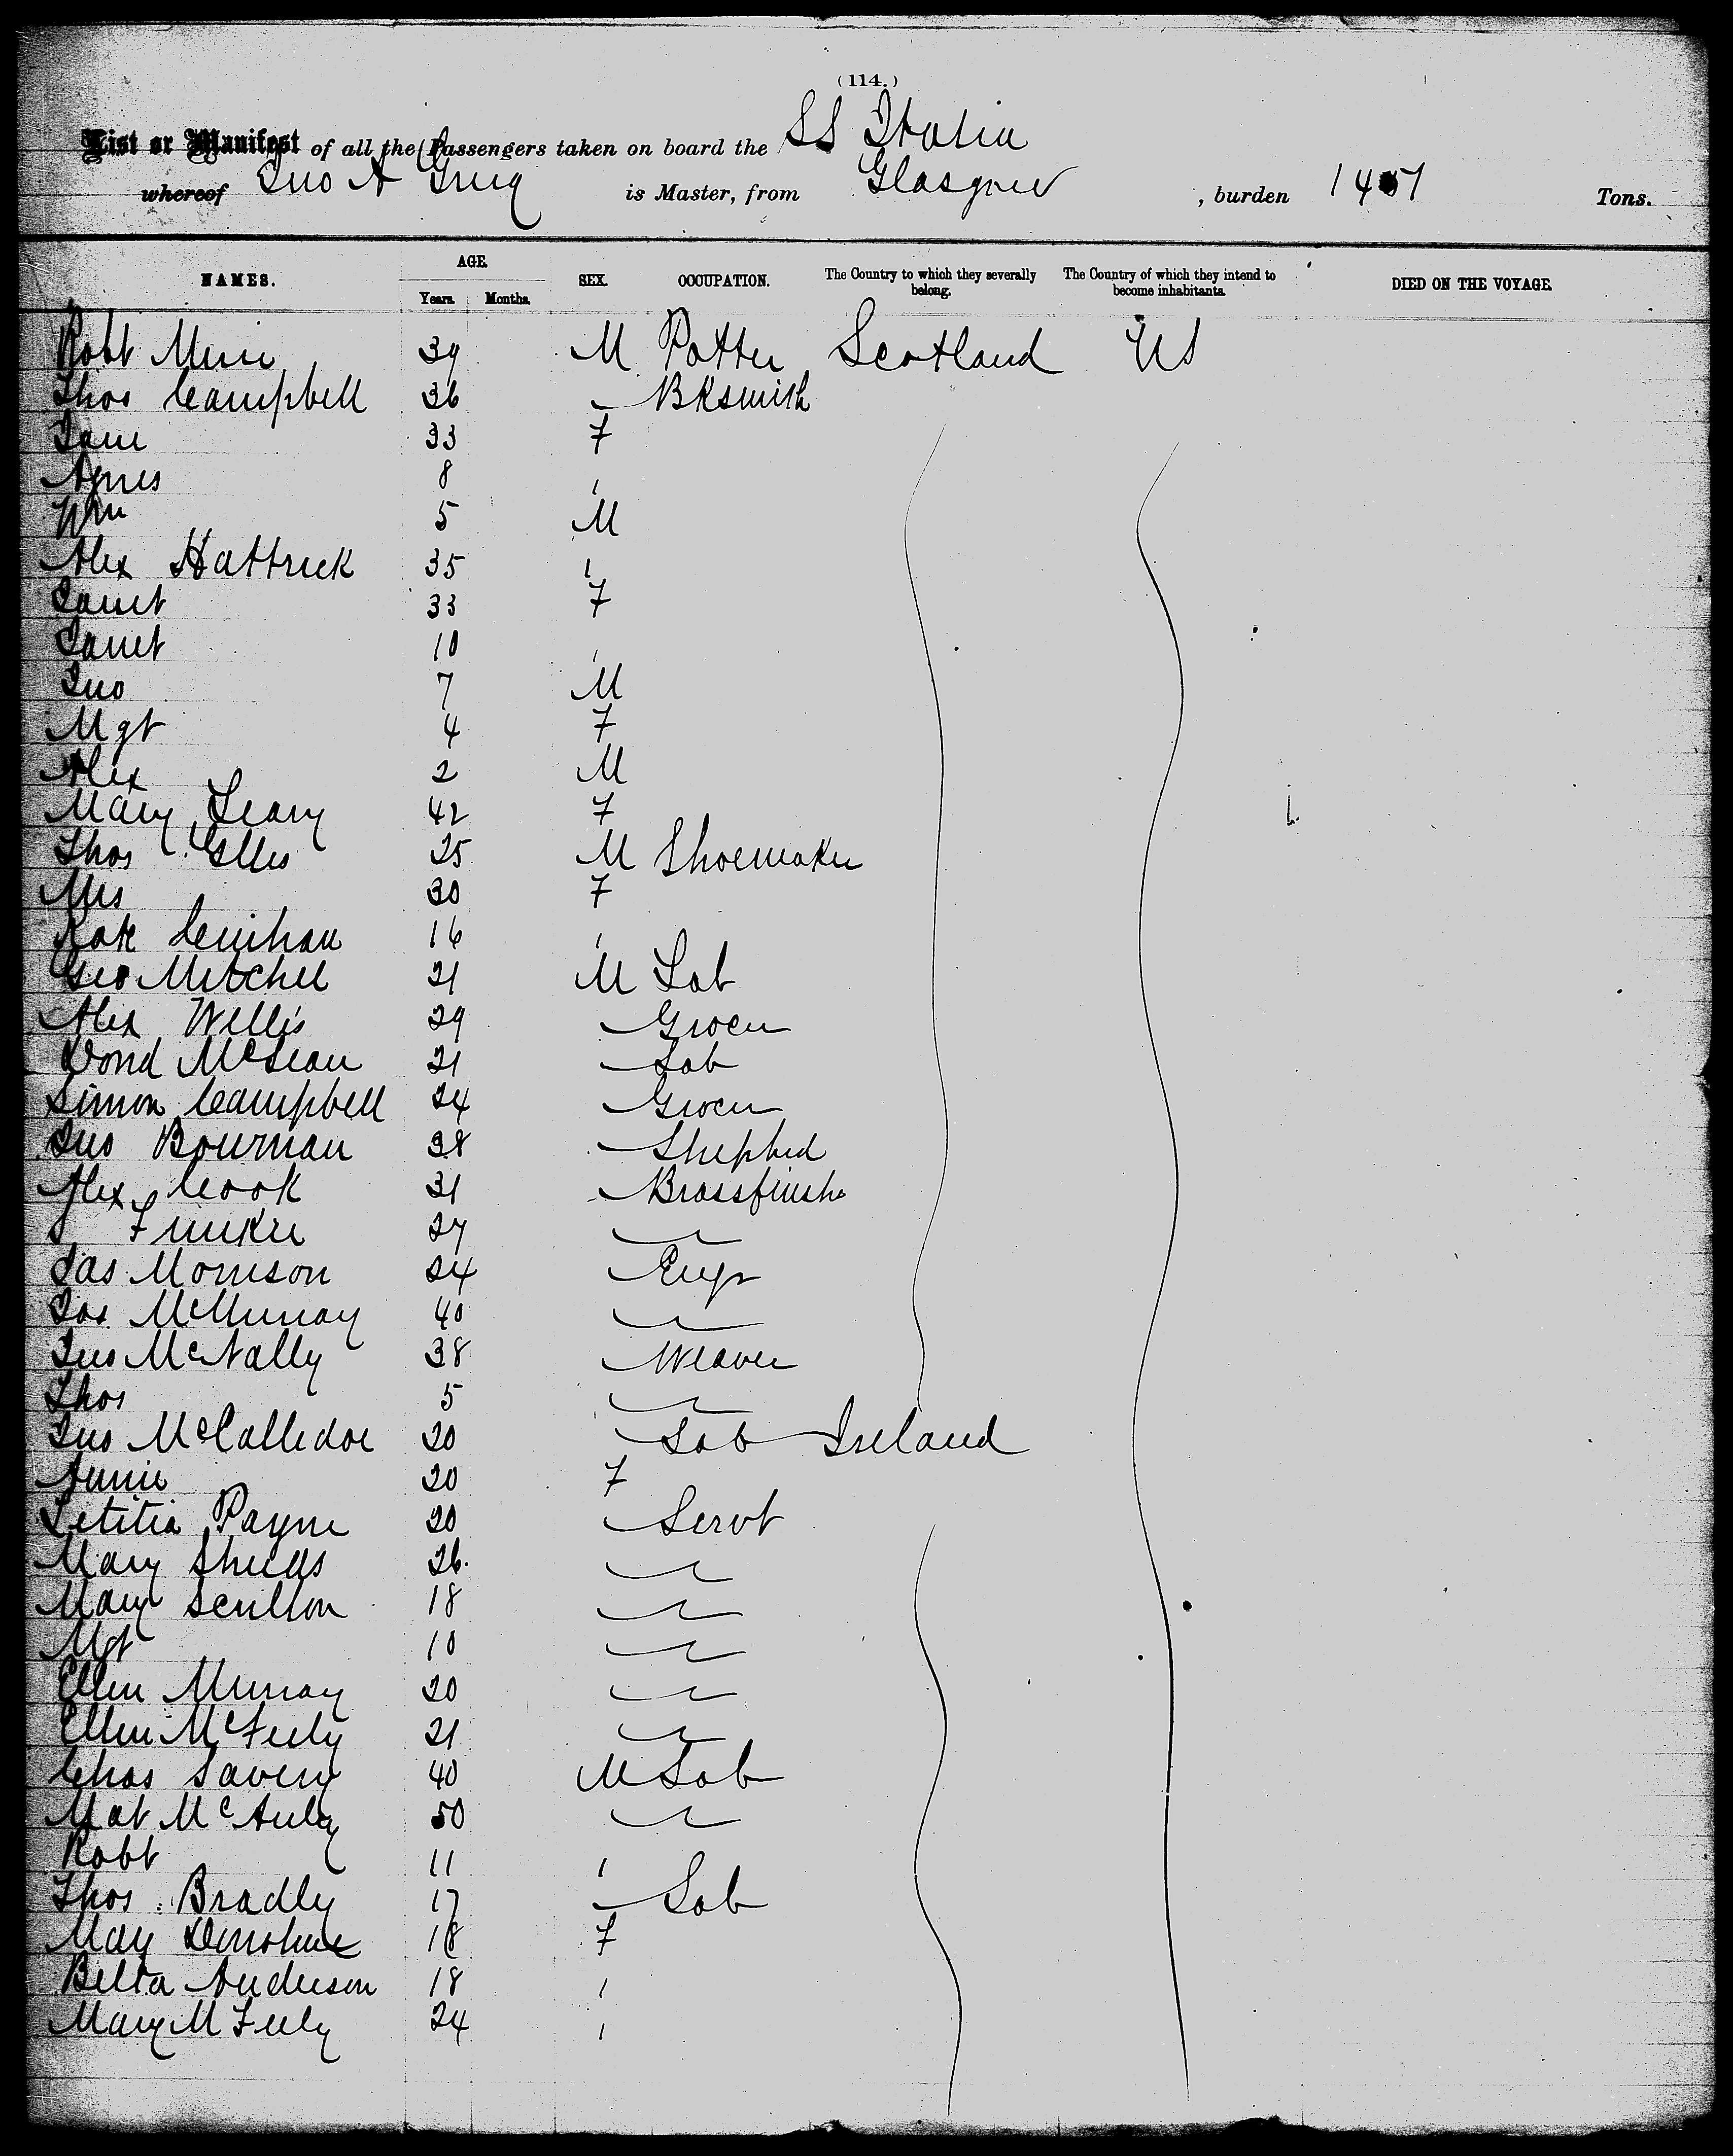 (114.)
List or Manifest of all the Passengers taken on board the SS Italia
whereof Jno A Greig is Master, from Glasgow, burden 14 Tons.
NAMES. AGE. SEX. OCCUPATION. The Country to which they severally belong. The Country of which they intend to become inhabitants. DIED ON THE VOYAGE.
Years. Months.
Robt Muir 39 M Potter Scotland US
Thos Campbell 36 Bksmith
Jane 33 F
Agnes 8
Wm 5 M
Alex Hattrick 35
Janet 33 F
Janet 10
Jno 7 M
Mgt 4 F
Alex 2 M
Mary Leary 42 F
Thos 25 M Shoemaker
Mrs 30 F
Kate Lenihan 16
Geo Mitchel 21 M Lab
Alex Willis 29 Grocer
Dond McLean 21 Lab
Simon Campbell 24 Grocer
Jno Bowman 38 Shepherd
Alex Cook 31 Brassfinshr
27
Jas Morrison 24 Engr
Jas McMurray 40
Jno McNally 38 Weaver
Thos 5
Jno 20 Lab Ireland
Annie 20 F
Letitia Payne 20 Servt
Mary Shields 26
Mary Scullion 18
Mgt 10
Ellen Murray 20
Ellen McFeely 21
Chas Savery 40 M Lab
Mat McAuley 50
Robt 11
Thos Bradly 17 Lab
May Donohue 18 F
Bella Anderson 18
Mary McFeely 24